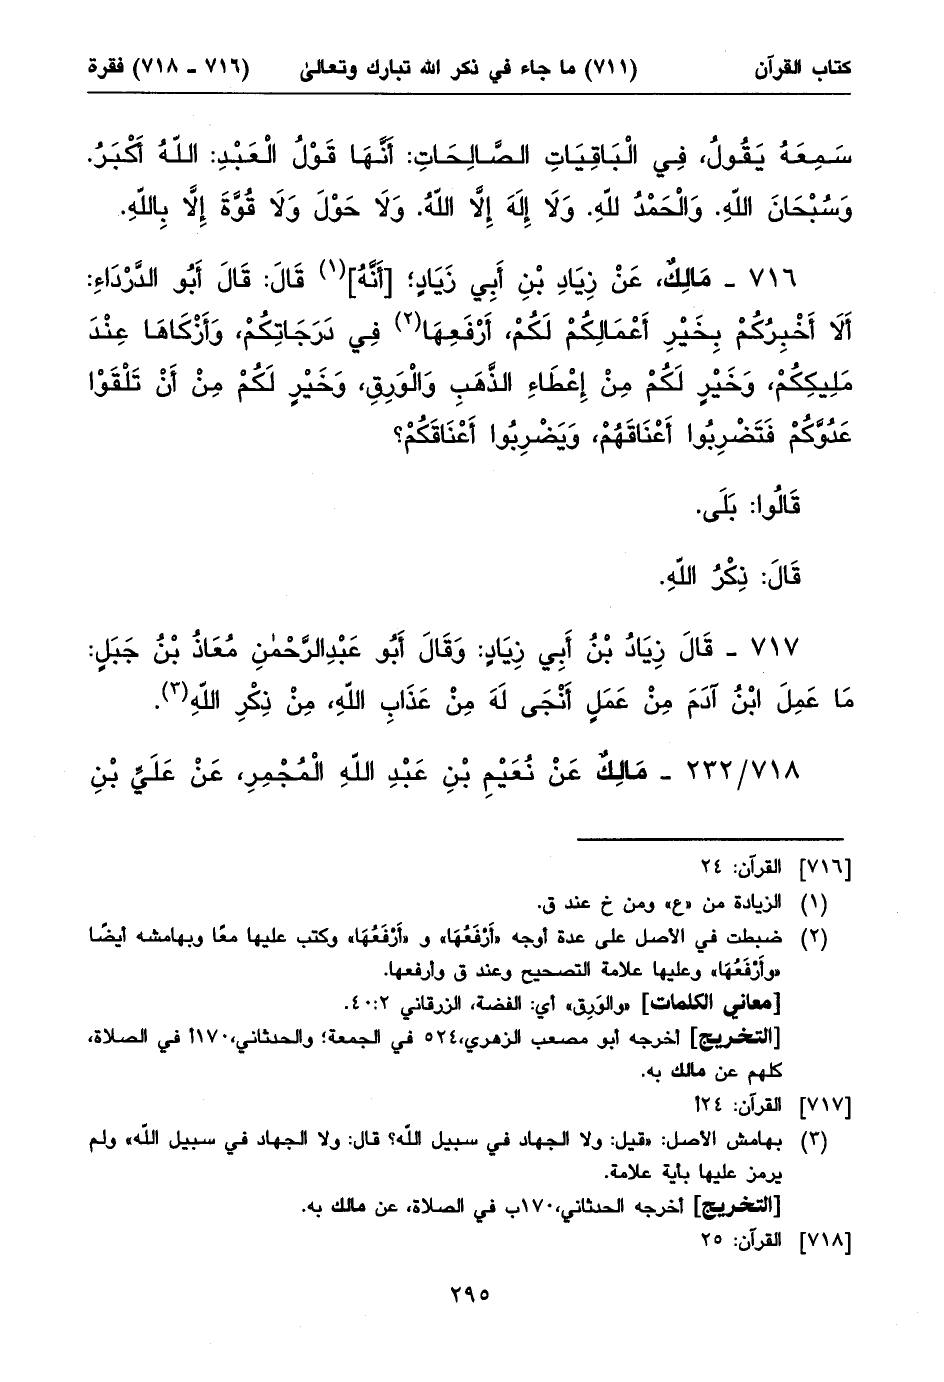 كتاب القرآن (٧١١) ما جاء في ذكر الله تبارك وتعالىٰ (٧١٦ - ٧١٨) فقرة
سَمِعَهُ يَقُولُ، فِي الْبَاقِيَاتِ الصَّالِحَاتِ: أَنَّهَا قَوْلُ الْعَبْدِ: اللّهُ أَكْبَرُ.
وَسُبْحَانَ اللّهِ. وَالْحَمْدُ للّهِ. وَلَا إِلَهَ إِلَّا اللّهُ. وَلَا حَوْلَ وَلَا قُوَّةَ إِلَّا بِاللّهِ.
٧١٦ - مَالِكٌ، عَنْ زِيَادِ بْنِ أَبِي زَيَادٍ؛ [أَنَّهُ](١) قَالَ: قَالَ أَبُو الدَّرْدَاءِ:
أَلَا أُخْبِرُكُمْ بِخَيْرِ أَعْمَالِكُمْ لَكُمْ، أَرْفَعِهَا(٢) فِي دَرَجَاتِكُمْ، وَأَزْكَاهَا عِنْدَ
مَلِيكِكُمْ، وَخَيْرٍ لَكُمْ مِنْ إِعْطَاءِ الذَّهَبِ وَالْوَرِقِ، وَخَيْرٍ لَكُمْ مِنْ أَنْ تَلْقَوْا
عَدُوَّكُمْ فَتَضْرِبُوا أَعْنَاقَهُمْ، وَيَضْرِبُوا أَعْنَاقَكُمْ؟
قَالُوا: بَلَى.
قَالَ: ذِكْرُ اللّهِ.
٧١٧ - قَالَ زِيَادُ بْنُ أَبِي زِيَادٍ: وَقَالَ أَبُو عَبْدِالرَّحْمٰنِ مُعَاذُ بْنُ جَبَلٍ:
مَا عَمِلَ ابْنُ آدَمَ مِنْ عَمَلٍ أَنْجَى لَهُ مِنْ عَذَابِ اللّهِ، مِنْ ذِكْرِ اللّهِ(٣).
٢٣٢/٧١٨ - مَالِكٌ عَنْ نُعَيْمِ بْنِ عَبْدِ اللّهِ الْمُجْمِرِ، عَنْ عَلَيِّ بْنِ
[٧١٦] القرآن: ٢٤
(١) الزيادة من «ع» ومن خ عند ق.
(٢) ضبطت في الأصل على عدة أوجه «أَرْفَعِهَا» و «أَرْفَعُهَا» وكتب عليها معًا وبهامشه أيضًا
«وأَرْفَعُهَا» وعليها علامة التصحيح وعند ق وأرفعها.
[معاني الكلمات] «والوَرِق» أي: الفضة، الزرقاني ٤٠:٢.
[التخريج] أخرجه أبو مصعب الزهري،٥٢٤ في الجمعة؛ والحدثاني،١٧٠أ في الصلاة،
كلهم عن مالك به.
[٧١٧] القرآن: ٢٤أ
(٣) بهامش الأصل: «قيل: ولا الجهاد في سبيل اللّه؟ قال: ولا الجهاد في سبيل اللّه» ولم
يرمز عليها بأية علامة.
[التخريج] أخرجه الحدثاني،١٧٠ب في الصلاة، عن مالك به.
[٧١٨] القرآن: ٢٥
٢٩٥